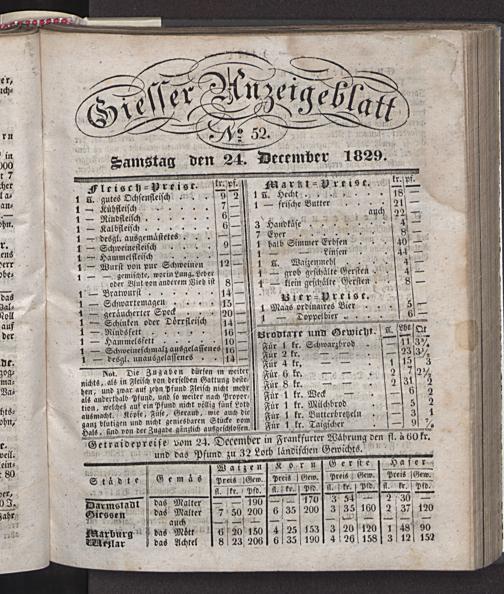 Giesser Anzeigeblatt
№ 52.
Samstag den 24. December 1829.
Fleisch-Preise. kr. pf.
1 ℔. gutes Ochsenfleisch 9 2
1 — Kuhfleisch 7
1 — Rindfleisch 6
1 — Kalbfleisch 6
1 — desgl. ausgemästetes
1 — Schweinefleisch 9
1 — Hammelfleisch
1 — Wurst von pur Schweinen 12
1 — gemischte, worin Lung, Leber
oder Blut von anderem Vieh ist 8
1 — Bratwurst 14
1 — Schwartemagen 15
1 — geräucherter Speck 20
1 — Schinken oder Dörrfleisch 14
1 — Rindsfett 16
1 — Hammelsfett 10
1 — Schweineschmalz ausgelassenes 16
1 — desgl. unausgelassenes 14
Not. Die Zugaben dürfen in weiter
nichts, als in Fleisch von derselben Gattung beste-
hen, und zwar auf zehn Pfund Fleisch nicht mehr
als anderthalb Pfund, und so weiter nach Propor-
tion, welches auf ein Pfund nicht völlig fünf Loth
ausmacht. Köpfe, Füße, Geraub, wie auch die
ganz blutigen und nicht geniesbaren Stücke vom
Hals, sind von der Zugabe gänzlich ausgeschlossen.
Markt-Preise. kr. pf.
1 ℔. Hecht 18
1 — frische Butter 21
auch 22
3 Handkäse 4
7 Eyer 8
1 halb Simmer Erbsen 40
1 — Linsen 44
1 ℔. Waizenmehl 4
1 — grob geschälte Gersten 4
1 — klein geschälte Gersten 8
Bier-Preise.
1 Maas ordinaires Bier 5
Doppelbier 6
Brodtaxe und Gewicht. ℔. Lth Qt
Für 1 kr. Schwarzbrod 11
Für 2 kr. 23
Für 4 kr. 1 15 3
Für 6 kr. 2 7
Für 8 kr. 2 31 2
Für 1 kr. Weck 6
Für 1 kr. Milchbrod 5
Für 1 kr. Butterbretzeln 3 1
Für 1 kr. Taigscher 9
Getraidepreise vom 24. December in Frankfurter Währung den fl. à 60 kr.
und das Pfund zu 32 Loth ländischen Gewichts.
Städte Gemäs Waizen Korn Gerste Hafer
Preis Gew. Preis Gew. Preis Gew. Preis Gew.
fl. kr. Pfd. fl. kr. Pfd. fl. kr. Pfd. fl. kr. Pfd.
Darmstadt das Malter — — 190 — — 170 3 54 — 2 30 —
Giessen das Malter 7 50 200 6 35 200 3 35 160 2 37 120
auch
Marburg das Mött 6 20 150 4 25 153 3 20 120 1 48 90
Wetzlar das Achtel 8 23 206 6 35 190 4 26 158 3 12 152